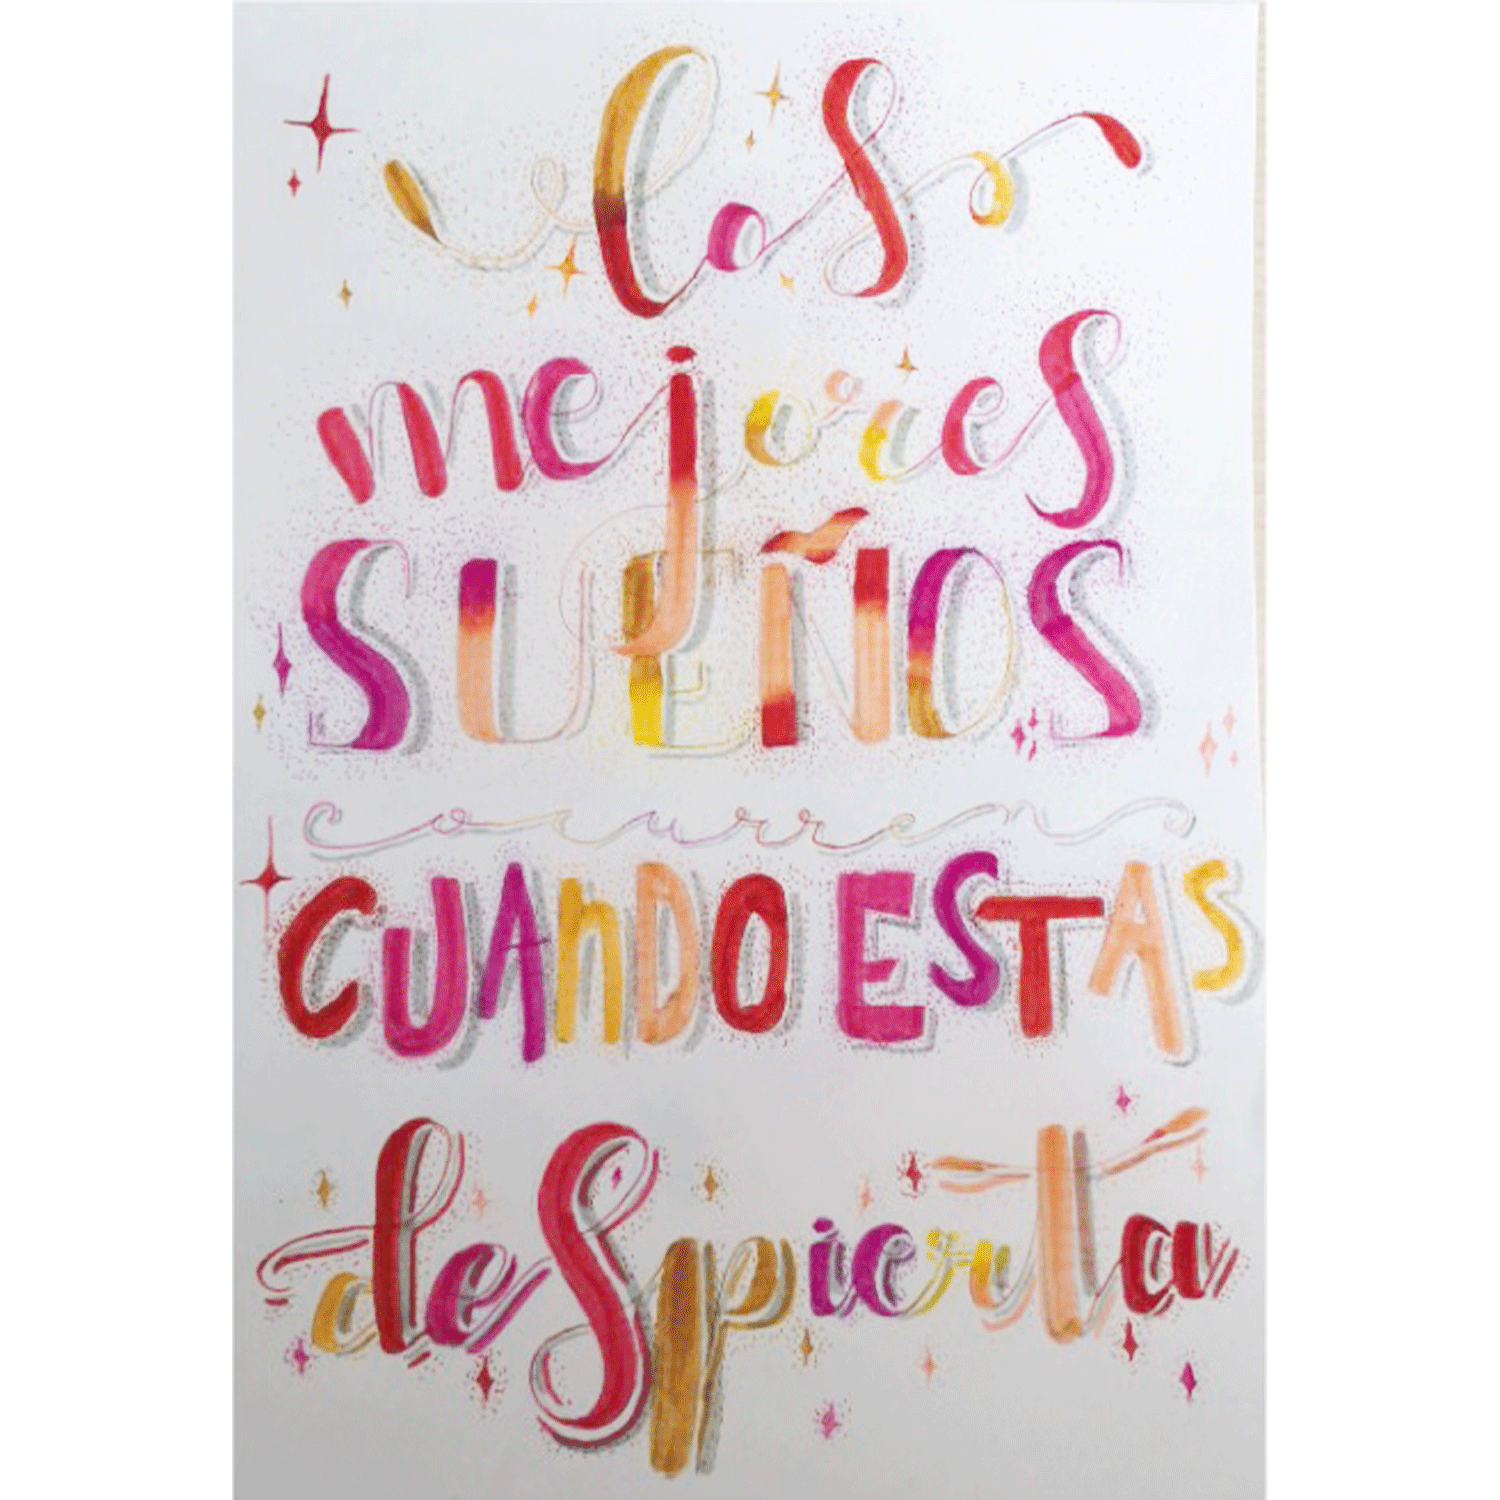 los
mejores
SUEÑOS
ocurren
CUANDO ESTAS
despierta